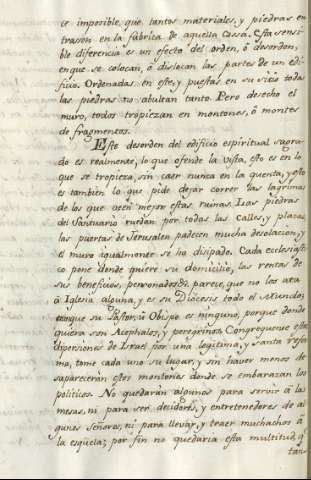 ce imposible, que tantos materiales, y piedras en
trason en la fabrica de aquella Cassa. Esta sensi
ble diferencia es un efecto del orden, ô desorden,
en que se colocan, ô dislocan las partes de un edi
ficio. Ordenadas en este, y puestas en su sitio todas
las piedras no abultan tanto. Pero desecho el
muro, todos tropiezan en montones, ô montes
de fragmentos.
Este desorden del edificio espiritual sagra
do es realmente, lo que ofende la vista, esto es en lo
que se tropieza, sin caer nunca en la quenta, y esto
es tambien lo que pide dejar correr las lagrimas
de los que veen mejor estas ruinas. Las piedras
del Santuario ruedan por todas las calles, y plazas
las puertas de Jerusalen padecen mucha desolacion, y
el muro igualmente se ho disipado. Cada eclesiasti
co pone donde quiere su domicilio, las rentas de
sus beneficios, parece, que no los ata
â Iglesia alguna, y es su Diocesis todo el Mundo,
aunque su Pastor, û Obispo es ninguno, porque donde
quiera son Acephalos, y peregrinos. Congreguense estas
dipersiones de Israel por una legitima, y santa refor
ma, tome cada uno su lugar, y sin haver menos de
sapareceran estos montones donde se embarazan los
politicos. No quedarân algunos para servir â las
mesas, ni para ser deudores, y entretenedores de al
gunas Señoras, ni para llevar, y traer muchachos â
la esquela; por fin no quedaria esta multitud, q.
tan